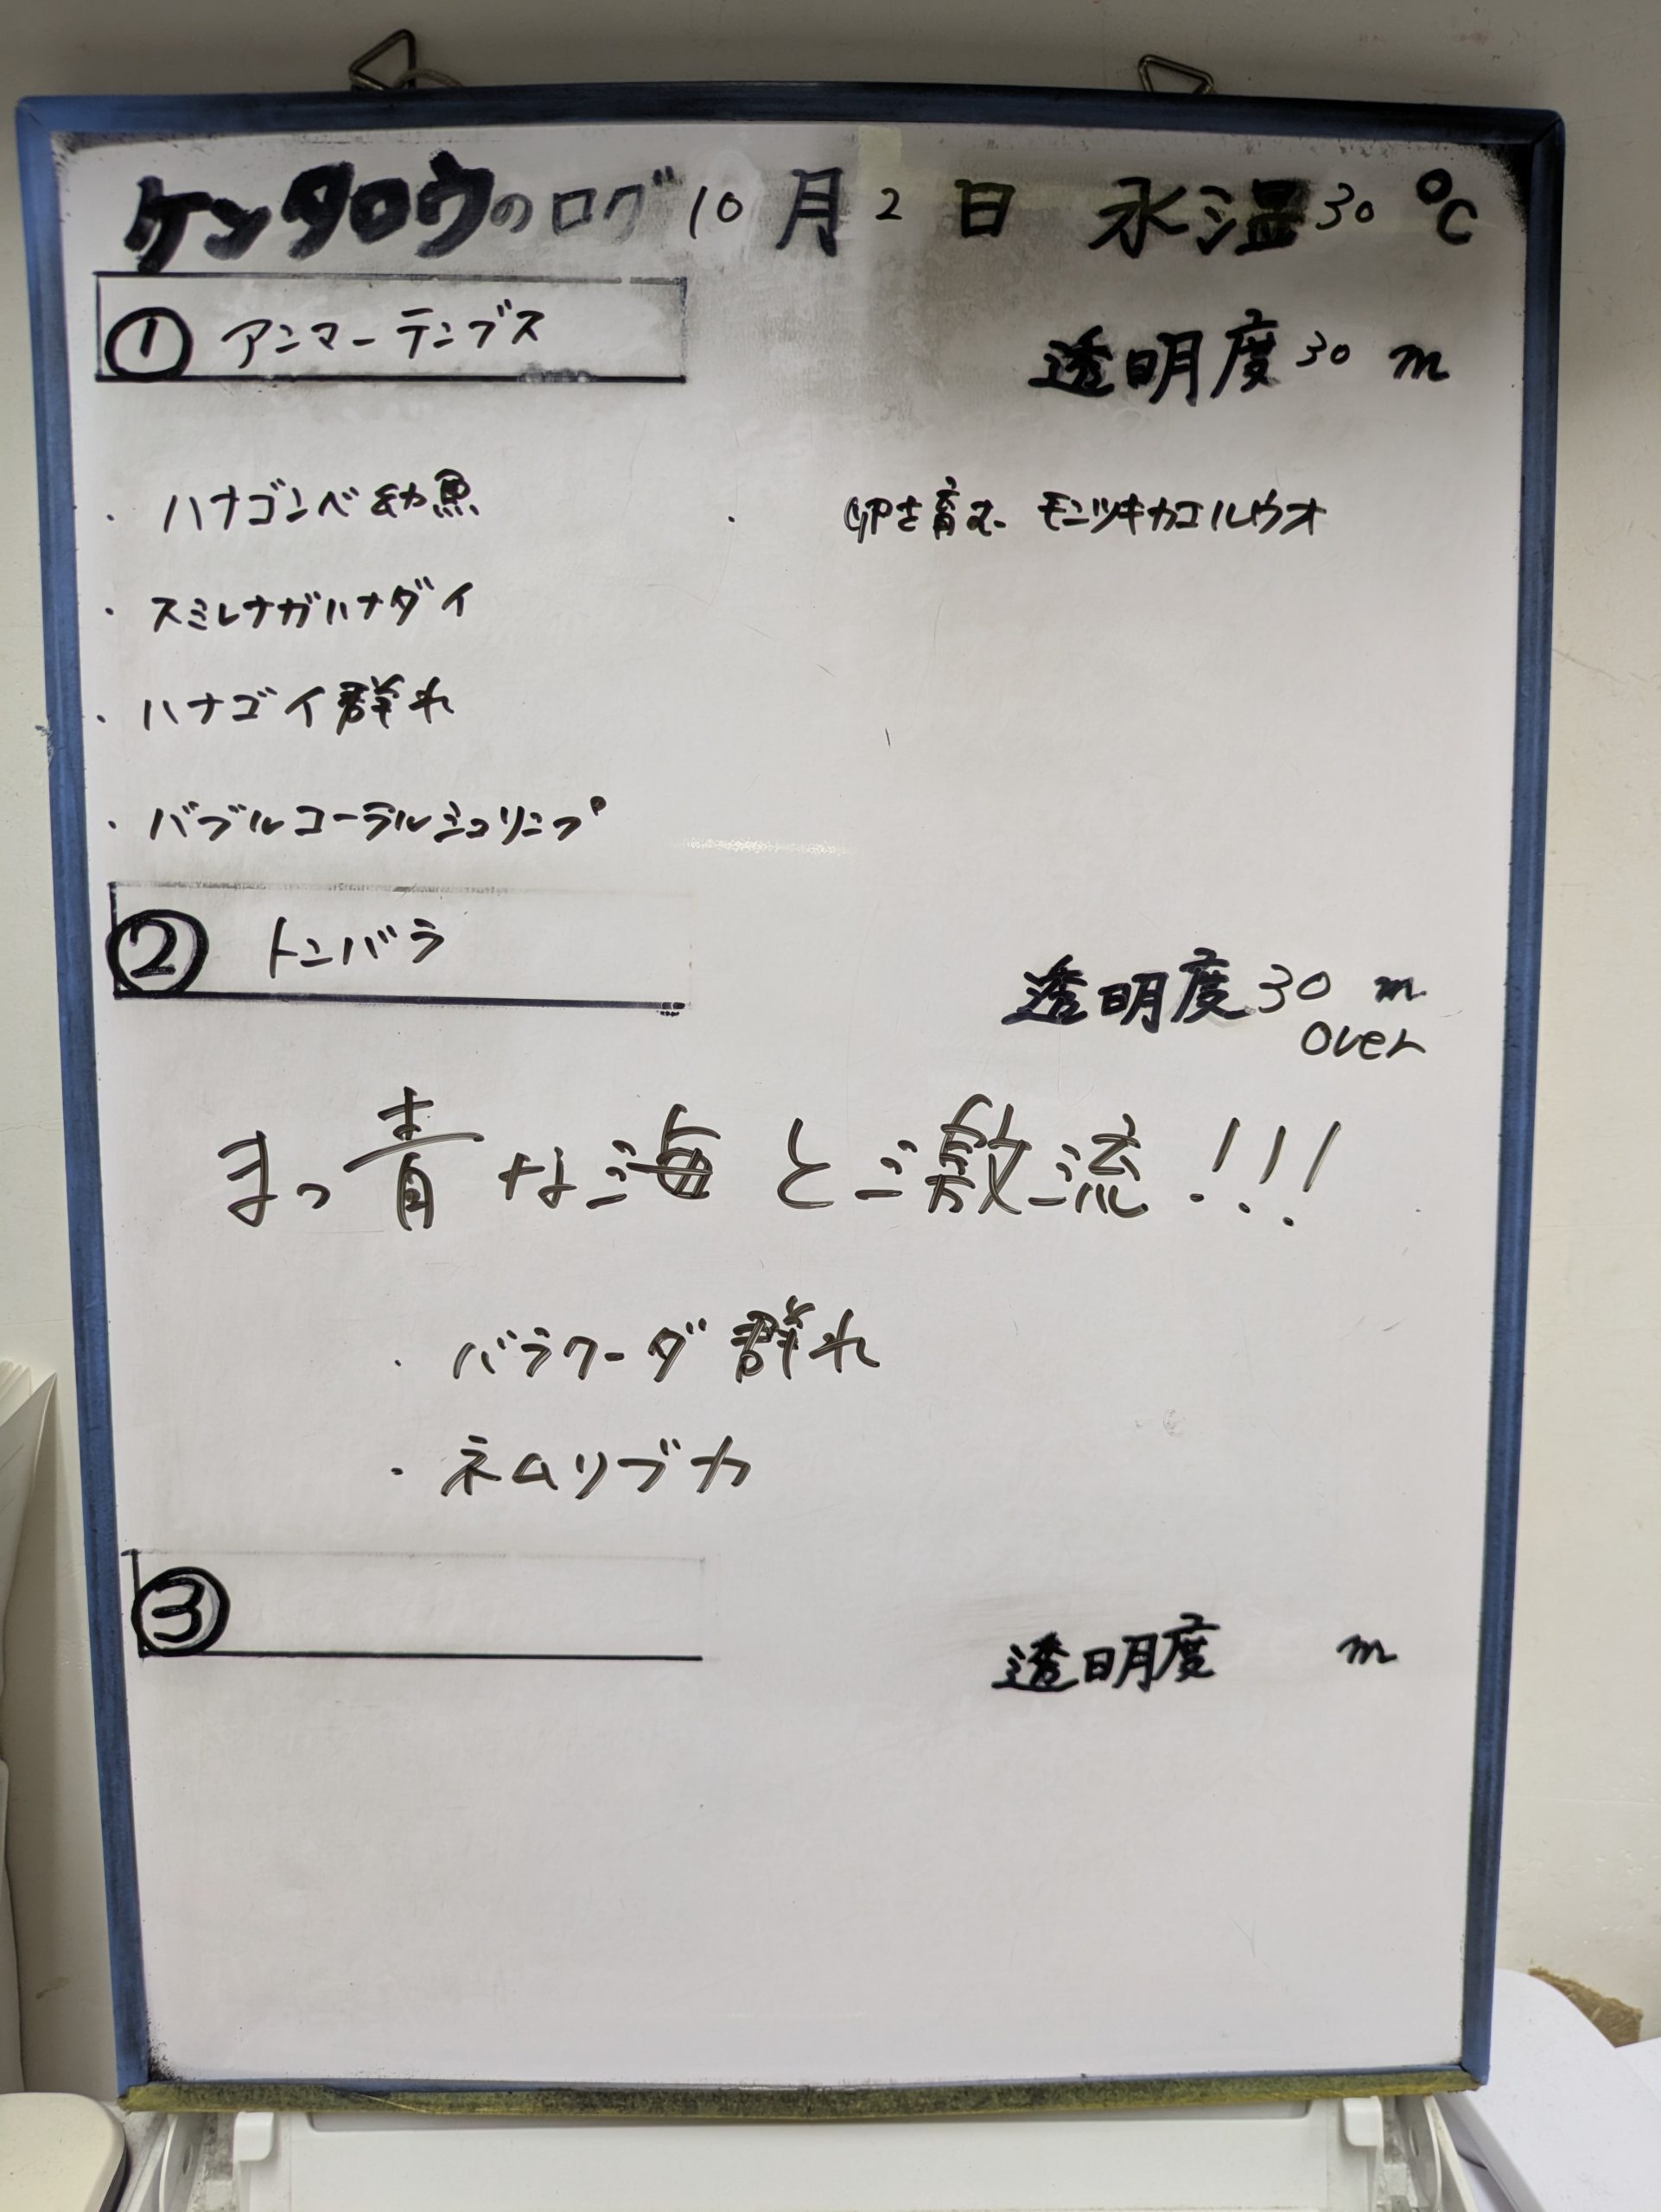 ケンタロウのログ 10月2日 水温30℃
① アンマーテンブス 透明度30m
・ハナゴンベ幼魚 ・卵を育む モンツキカエルウオ
・スミレナガハナダイ
・ハナゴイ群れ
・バブルコーラルシュリンプ
② トンバラ 透明度30m
over
まっ青な海とご激流!!!
・バラクーダ群れ
・ネムリブカ
③ 透明度 m